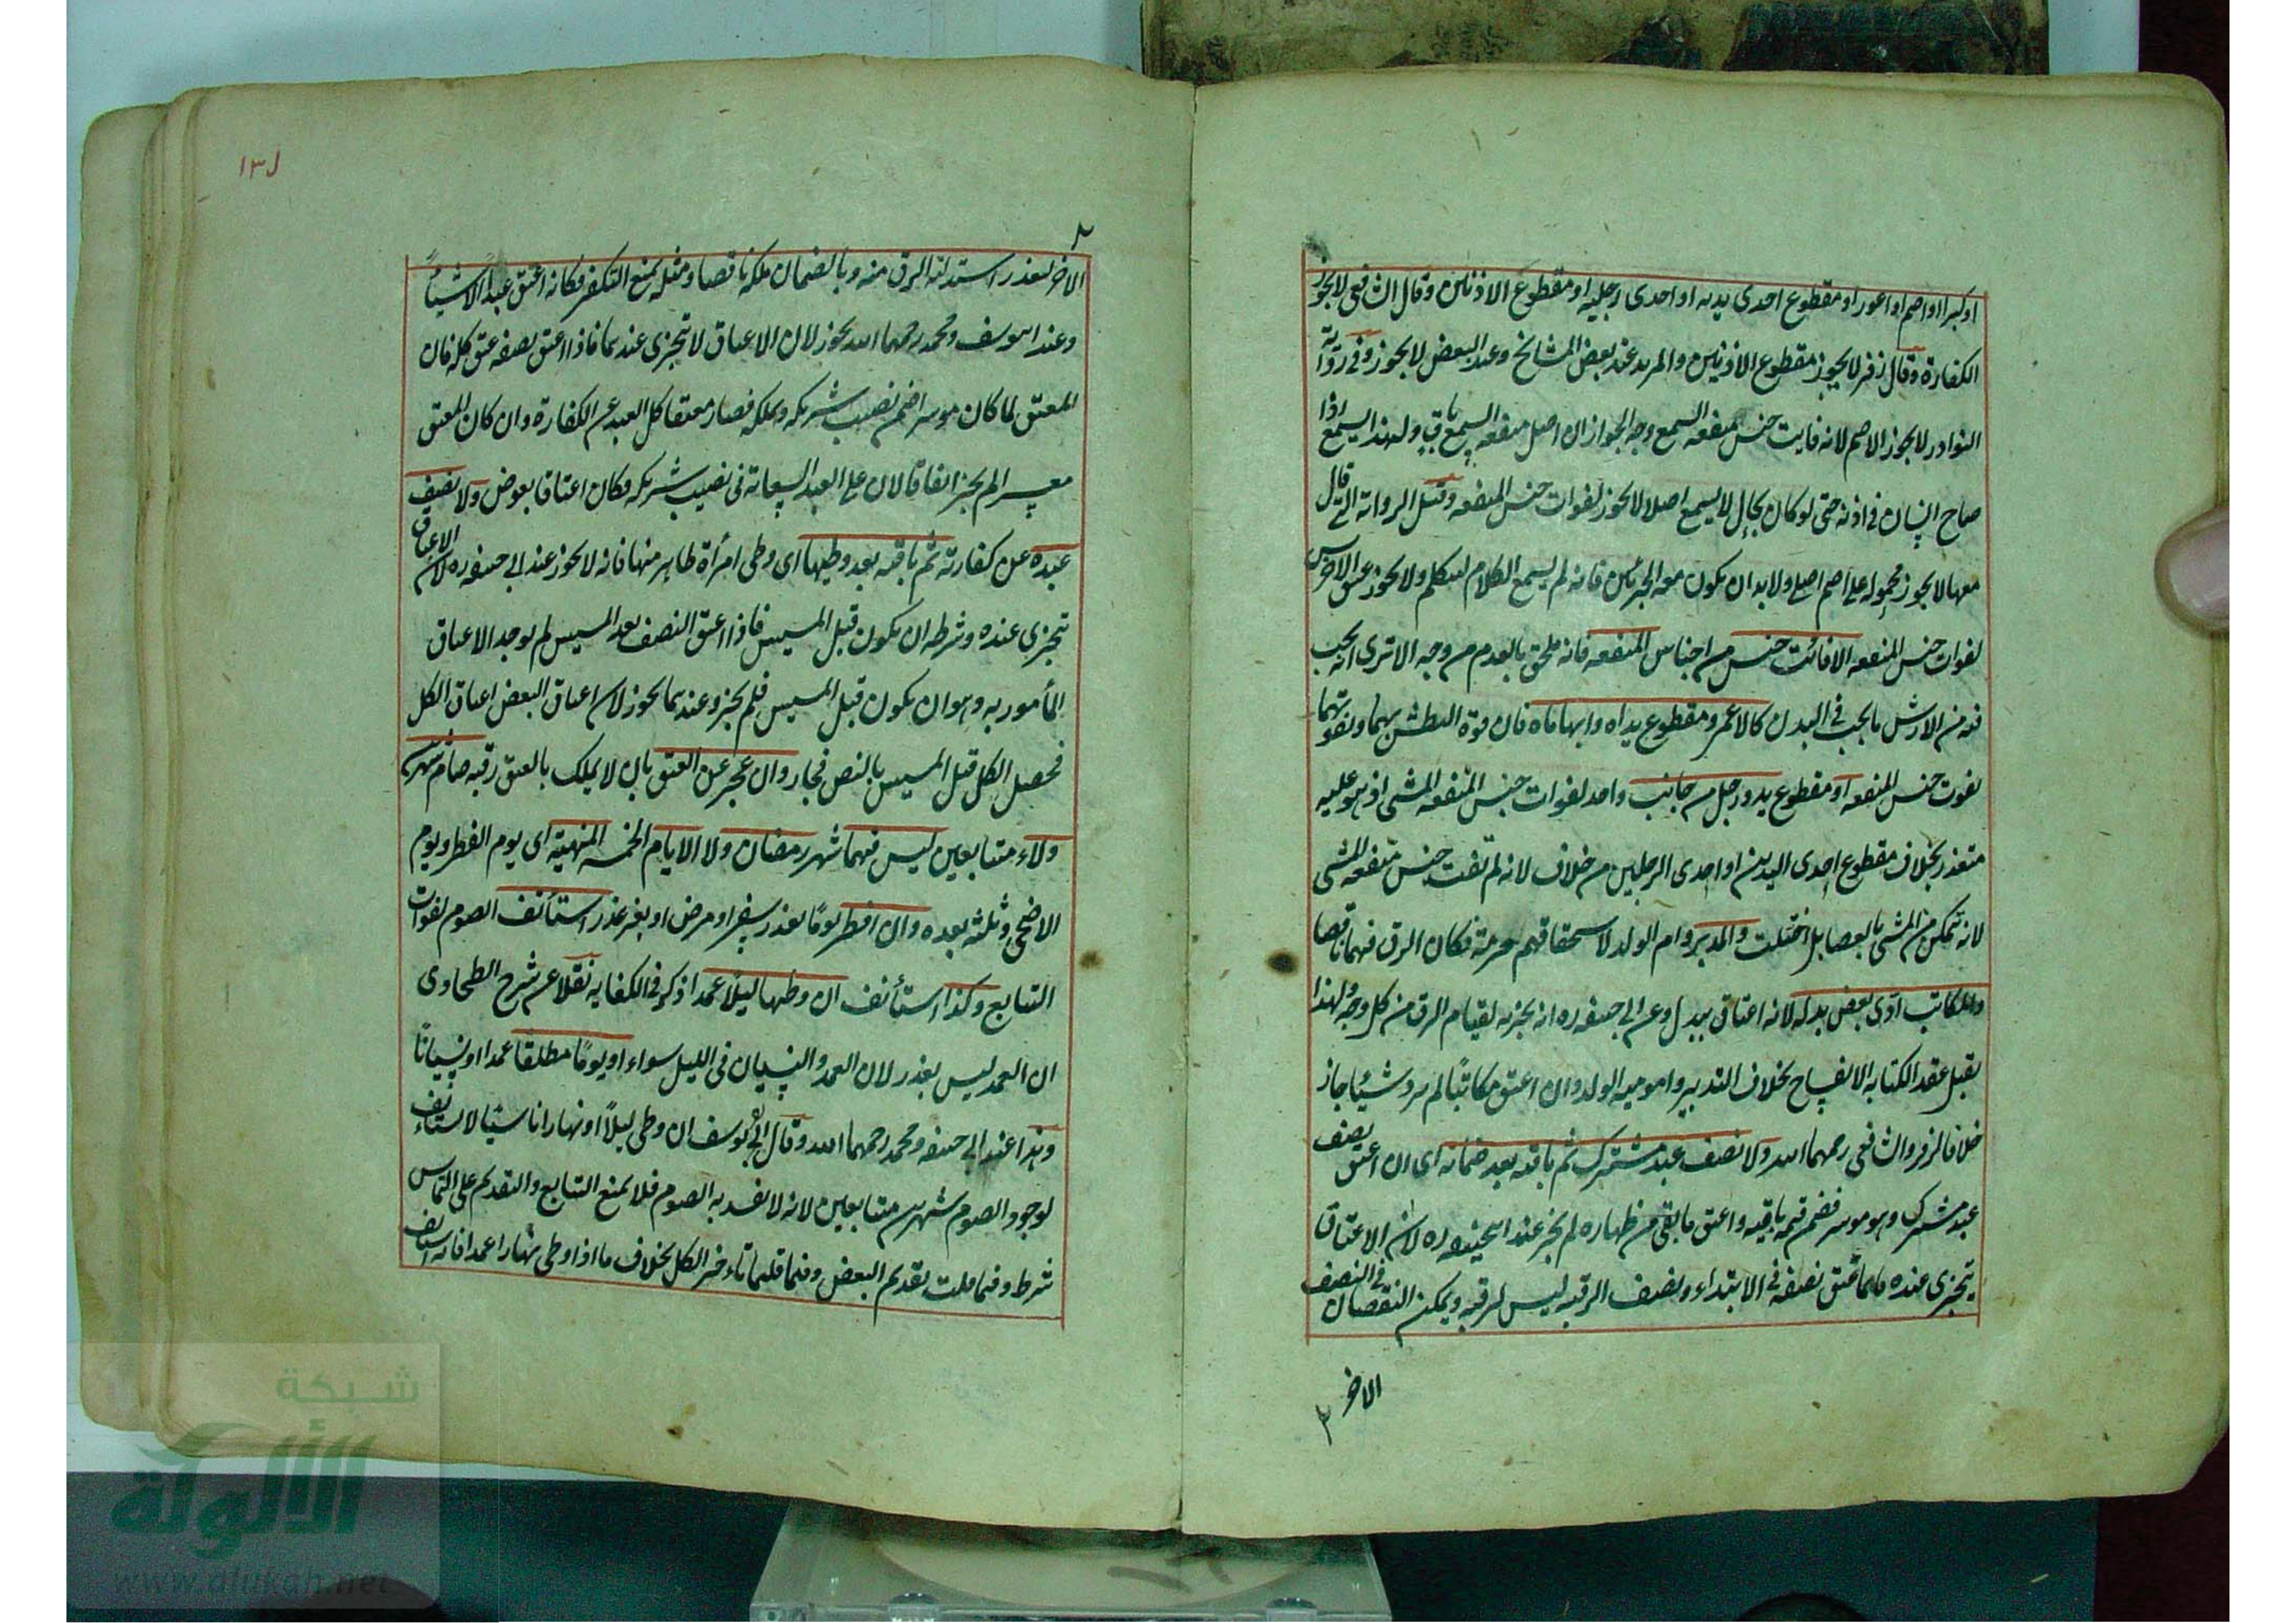 او كبيرا او اصم او اعور او مقطوع احدى يديه او احدى رجليه او مقطوع الاذنين وقال الشافعي لا يجوز
الكفارة وقال زفر لا يجوز مقطوع الاذنين والمرتد عند بعض المشايخ وعند البعض لا يجوز وفي رواية
النوادر لا يجوز الاصم لانه فايت جنس منفعه السمع وجه الجواز ان اصل منفعه السمع باق ولهذا يسمع اذا
صاح انسان في اذنه حتى لو كان بحال لا يسمع اصلا لا يجوز لفوات جنس المنفعه وقيل الرواية التي قال
معها لا يجوز محموله على اصم اصلي ولا بد ان يكون معه الخرس فانه لم يسمع الكلام ليتكلم ولا يجوز عتق الاخرس
لفوات جنس المنفعه الا فائت جنس من اجناس المنفعه فانه ملحق بالعدم من وجه الا ترى انه يجب
فيه من الارش ما يجب في البدن كالاعمى ومقطوع يداه وابهاماه فان قوة البطش بهما وبفوتهما
يفوت جنس المنفعه او مقطوع يد ورجل من جانب واحد لفوات جنس المنفعه المشى اذ هو عليه
متعذر بخلاف مقطوع احدى اليدين او احدى الرجلين من خلاف لانه لم تفت جنس منفعه المشى
لانه يتمكن من المشى بالعصا بل اختلت والمدبر وام الولد لاستحقاقهم حرمة فكان الرق فيهما ناقصا
والمكاتب ادى بعض بدله لانه اعتاق ببدل وعن ابي حنيفه ره انه يجزيه لقيام الرق من كل وجه ولهذا
تقبل عقد الكتابه الانفساخ بخلاف التدبير واموميه الولد وان اعتق مكاتبا لم يرد شيئا جاز
خلافا لزفر والشافعي رحمهما الله ولا نصف عبد مشترك ثم باقيه بعد ضمانه اي ان اعتق نصف
عبد مشترك وهو موسر فضمن قيمه باقيه واعتق ما بقى من ظهاره لم يجز عند ابيحنيفه ره لان الاعتاق
يتجزى عنده فلما عتق نصفه في الابتداء ونصف الرقبه ليس لرقبه ويمكن النقصان في النصف
الاخر
١٣١
الاخر لتعذر استدامة الرق منه وبالضمان ملكه ناقصا ومثله يمنع التكفير فكانه اعتق عبدا الا شيئا
وعند ابيوسف ومحمد رحمهما الله يجوز لان الاعتاق لا تتجزى عندهما فاذا اعتق نصفه عتق كله فان
المعتق لما كان موسرا ضمن نصيب شريكه وملكه فصار معتقا كل العبد عن الكفارة وان كان المعتق
معسرا لم يجز اتفاقا لان على العبد السعاية في نصيب شريكه فكان اعتاقا بعوض ولا نصف
عبده عن كفارته ثم باقيه بعد وطيها اى وطى امرأة ظاهر منها فانه لا يجوز عند ابى حنيفه ره لان الاعتاق
تتجزى عنده وشرطه ان يكون قبل المسيس فاذا اعتق النصف بعد المسيس لم يوجد الاعتاق
المأمور به وهو ان يكون قبل المسيس فلم يجز وعندهما يجوز لان اعتاق البعض اعتاق الكل
فحصل الكل قبل المسيس بالنص فجاز وان عجز عن العتق بان لا يملك بالعتق رقبه صام شهرين
ولاء متتابعين ليس فيهما شهر رمضان ولا الايام الخمسه المنهية اى يوم الفطر ويوم
الاضحى وثلثه بعده وان افطر يوما بعذر سفر او مرض او بغير عذر استأنف الصوم لفوات
التتابع وكذا استأنف ان وطيها ليلا عمدا ذكر في الكفايه نقلا عن شرح الطحاوى
ان العمد ليس بعذر لان العمد والنسيان في الليل سواء او يوما مطلقا عمدا او نسيانا
وهذا عند ابى حنيفه ومحمد رحمهما الله وقال ابى يوسف ان وطى ليلا او نهارا ناسيا لا يستأنف
لوجود الصوم شهرين متتابعين لانه لا يفسد به الصوم فلا يمنع التتابع والتقديم على التماس
شرط وفيما قلت تقديم البعض وفيما قلتما تاءخر الكل بخلاف ما اذا وطى نهارا عمدا فانه استأنف
شبكة
الألوكة
www.alukah.net